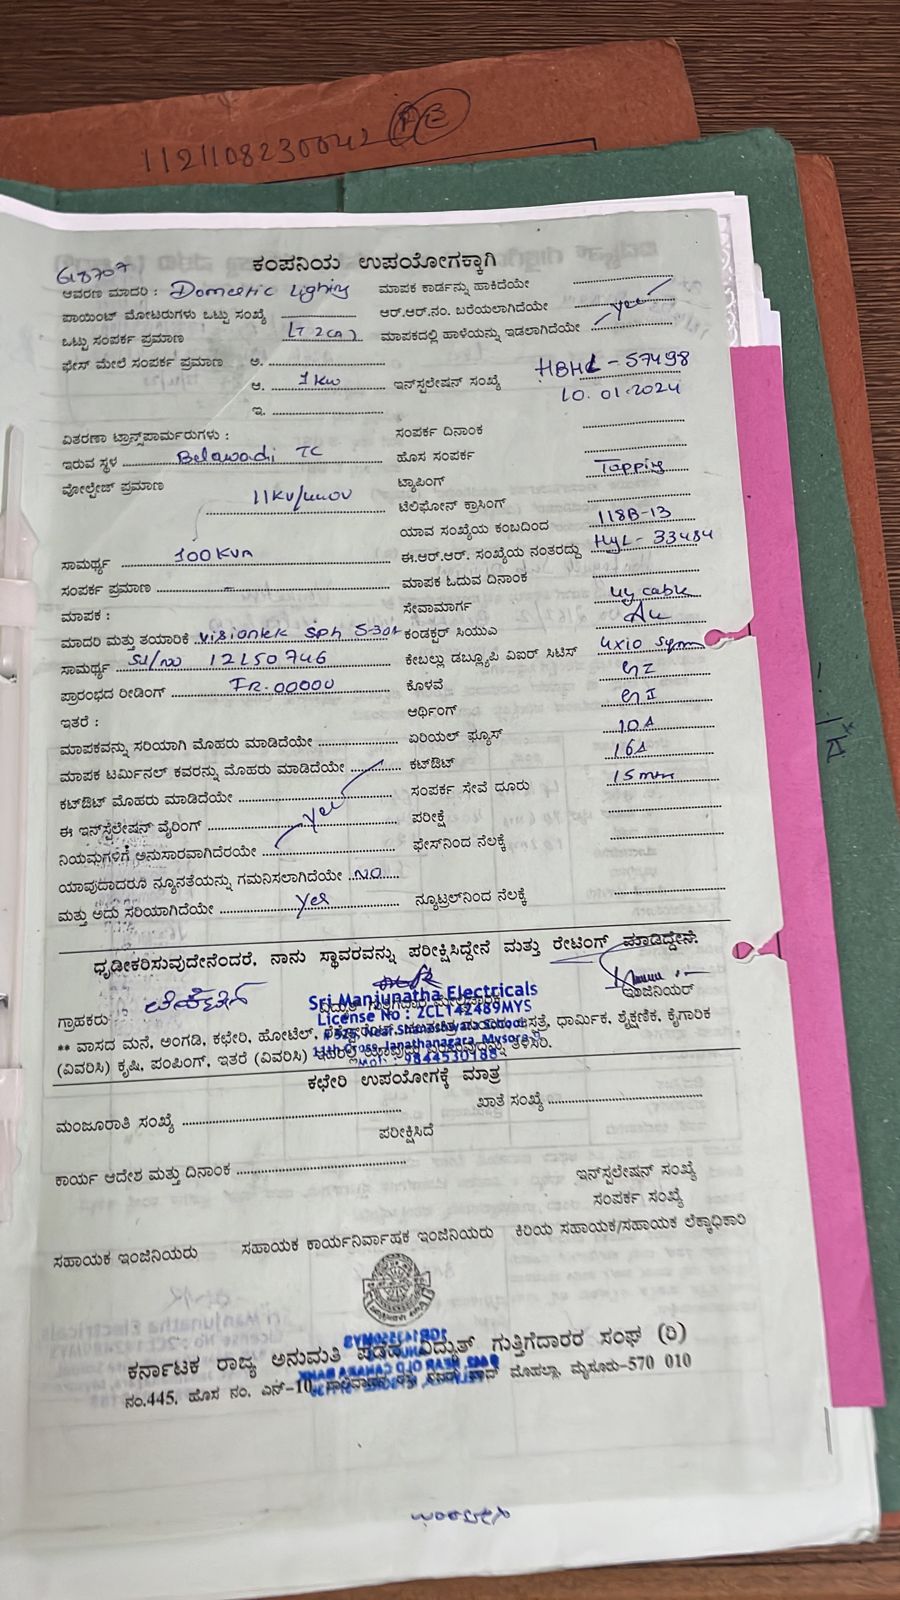 1121108230042 B
ಕಂಪನಿಯ ಉಪಯೋಗಕ್ಕಾಗಿ
G18707
ಆವರಣ ಮಾದರಿ : Domestic Lighing ಮಾಪಕ ಕಾರ್ಡನ್ನು ಹಾಕಿದೆಯೇ
ಪಾಯಿಂಟ್ ಮೋಟರುಗಳು ಒಟ್ಟು ಸಂಖ್ಯೆ ಆರ್.ಆರ್.ನಂ. ಬರೆಯಲಾಗಿದೆಯೇ yes
ಒಟ್ಟು ಸಂಪರ್ಕ ಪ್ರಮಾಣ LT 2(a) ಮಾಪಕದಲ್ಲಿ ಹಾಳೆಯನ್ನು ಇಡಲಾಗಿದೆಯೇ
ಫೇಸ್ ಮೇಲೆ ಸಂಪರ್ಕ ಪ್ರಮಾಣ ಅ.
ಆ. 1 Kw ಇನ್‌ಸ್ಟಲೇಷನ್ ಸಂಖ್ಯೆ HBHL-57498
ಇ. 10.01.2024
ವಿತರಣಾ ಟ್ರಾನ್ಸ್‌ಪಾರ್ಮರುಗಳು : ಸಂಪರ್ಕ ದಿನಾಂಕ
ಇರುವ ಸ್ಥಳ Belawadi TC ಹೊಸ ಸಂಪರ್ಕ
ವೋಲ್ಟೇಜ್ ಪ್ರಮಾಣ ಟ್ಯಾಪಿಂಗ್ Tapping
11KV/440V ಟೆಲಿಫೋನ್ ಕ್ರಾಸಿಂಗ್
ಯಾವ ಸಂಖ್ಯೆಯ ಕಂಬದಿಂದ 118B-13
ಸಾಮರ್ಥ್ಯ 100 KVA ಈ.ಆರ್.ಆರ್. ಸಂಖ್ಯೆಯ ನಂತರದ್ದು HYL-33484
ಸಂಪರ್ಕ ಪ್ರಮಾಣ ಮಾಪಕ ಓದುವ ದಿನಾಂಕ
ಮಾಪಕ : ಸೇವಾಮಾರ್ಗ uy cable
ಮಾದರಿ ಮತ್ತು ತಯಾರಿಕೆ Visiontek Sph ಕಂಡಕ್ಟರ್ ಸಿಯುಎ
ಸಾಮರ್ಥ್ಯ Sl/no 12150746 ಕೇಬಲ್ಲು ಡಬ್ಲ್ಯೂಪಿ ವಿಐರ್ ಸಿಟಿಸ್ 4x10 sqmm
ಪ್ರಾರಂಭದ ರೀಡಿಂಗ್ IR.00000 ಕೊಳವೆ GI
ಇತರೆ : ಆರ್ಥಿಂಗ್ GI
ಮಾಪಕವನ್ನು ಸರಿಯಾಗಿ ಮೊಹರು ಮಾಡಿದೆಯೇ ಏರಿಯಲ್ ಫ್ಯೂಸ್ 10A
ಮಾಪಕ ಟರ್ಮಿನಲ್ ಕವರನ್ನು ಮೊಹರು ಮಾಡಿದೆಯೇ ಕಟ್‌ಔಟ್ 16A
ಕಟ್‌ಔಟ್ ಮೊಹರು ಮಾಡಿದೆಯೇ ಸಂಪರ್ಕ ಸೇವೆ ದೂರು 15 mtr
ಈ ಇನ್‌ಸ್ಟಲೇಷನ್ ವೈರಿಂಗ್ yes ಪರೀಕ್ಷೆ
ನಿಯಮಗಳಿಗೆ ಅನುಸಾರವಾಗಿದೆರಯೇ ಫೇಸ್‌ನಿಂದ ನೆಲಕ್ಕೆ
ಯಾವುದಾದರೂ ನ್ಯೂನತೆಯನ್ನು ಗಮನಿಸಲಾಗಿದೆಯೇ NO
ಮತ್ತು ಅದು ಸರಿಯಾಗಿದೆಯೇ yes ನ್ಯೂಟ್ರಲ್‌ನಿಂದ ನೆಲಕ್ಕೆ
ಧೃಡೀಕರಿಸುವುದೇನೆಂದರೆ, ನಾನು ಸ್ಥಾವರವನ್ನು ಪರೀಕ್ಷಿಸಿದ್ದೇನೆ ಮತ್ತು ರೇಟಿಂಗ್ ಮಾಡಿದ್ದೇನೆ.
Sri Manjunatha Electricals
License No : 2CL142489MYS
ಗ್ರಾಹಕರು ಇಂಜಿನಿಯರ್
# 525, Near Sidhaleshwara School
11th Cross, Janathanagara, Mysore
Mob : 9844530188
** ವಾಸದ ಮನೆ, ಅಂಗಡಿ, ಕಛೇರಿ, ಹೋಟೆಲ್, ಧಾರ್ಮಿಕ, ಶೈಕ್ಷಣಿಕ, ಕೈಗಾರಿಕ
(ವಿವರಿಸಿ) ಕೃಷಿ, ಪಂಪಿಂಗ್, ಇತರೆ (ವಿವರಿಸಿ) ತಿಳಿಸಿರಿ.
ಕಛೇರಿ ಉಪಯೋಗಕ್ಕೆ ಮಾತ್ರ
ಮಂಜೂರಾತಿ ಸಂಖ್ಯೆ ಖಾತೆ ಸಂಖ್ಯೆ
ಪರೀಕ್ಷಿಸಿದೆ
ಕಾರ್ಯ ಆದೇಶ ಮತ್ತು ದಿನಾಂಕ
ಇನ್‌ಸ್ಟಲೇಷನ್ ಸಂಖ್ಯೆ
ಸಂಪರ್ಕ ಸಂಖ್ಯೆ
ಸಹಾಯಕ ಇಂಜಿನಿಯರು ಸಹಾಯಕ ಕಾರ್ಯನಿರ್ವಾಹಕ ಇಂಜಿನಿಯರು ಕಿರಿಯ ಸಹಾಯಕ/ಸಹಾಯಕ ಲೆಕ್ಕಾಧಿಕಾರಿ
ಕರ್ನಾಟಕ ರಾಜ್ಯ ಅನುಮತಿ ಪಡೆದ ವಿದ್ಯುತ್ ಗುತ್ತಿಗೆದಾರರ ಸಂಘ (ರಿ)
ನಂ.445, ಹೊಸ ನಂ. ಎನ್-10, ಮೊಹಲ್ಲಾ, ಮೈಸೂರು-570 010